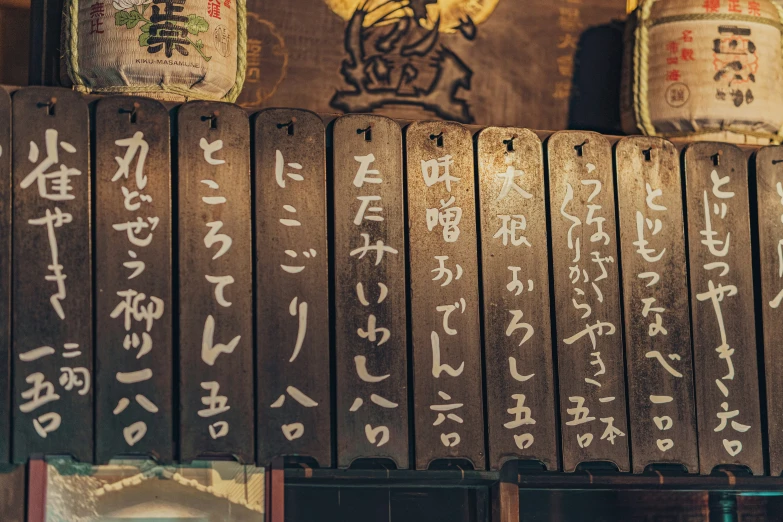 とりもつやき 六〇
ともつなべ 一〇〇
うなぎくりからやき 一本 五〇
大根おろし 五〇
味噌おでん 六〇
たたみいわし 八〇
にこごり 八〇
ところてん 五〇
丸どぜう柳川 一八〇
雀やき 二羽 一五〇
正宗
KIKU-MASAMUNE